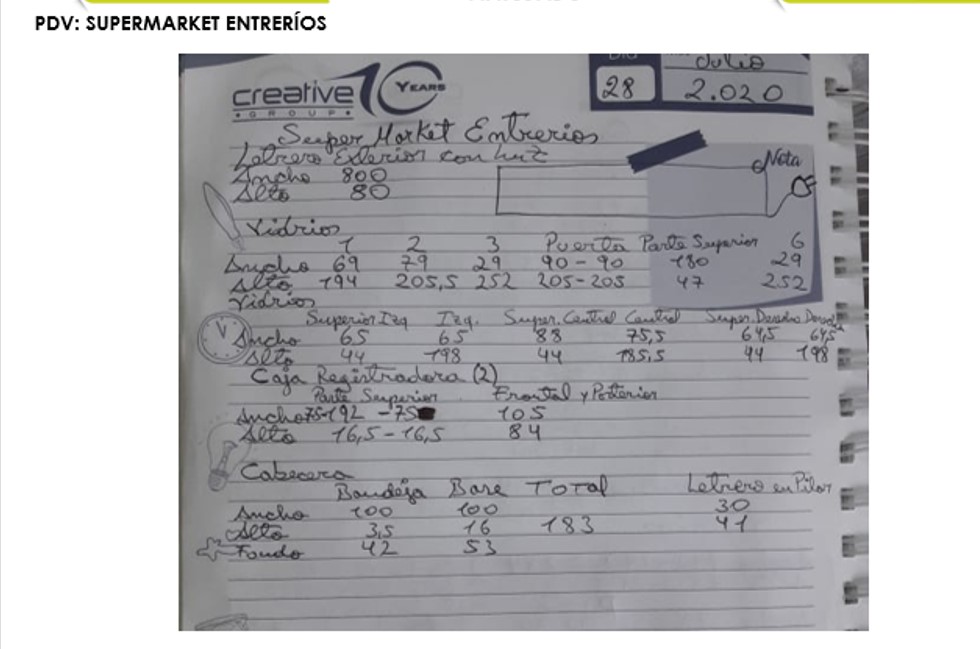 PDV: SUPERMARKET ENTRERÍOS
creative 10 YEARS
GROUP
Julio
28 2.020
Super Market Entrerios
Letrero Exterior con luz
Nota
Ancho 800
Alto 80
Vidrios
1 2 3 Puerta Parte Superior 6
Ancho 69 79 29 90-90 180 29
Alto 194 205,5 252 205-205 47 252
Vidrios
Superior Izq Izq. Super. Central Central Super. Derecho Derecha
Ancho 65 65 88 75,5 64,5 64,5
Alto 44 198 44 185,5 44 198
Caja Registradora (2)
Parte Superior Frontal y Posterior
Ancho 75-192-75 105
Alto 16,5-16,5 84
Cabecera
Bandeja Base TOTAL Letrero en Pilar
Ancho 100 100 30
Alto 3,5 16 183 41
Fondo 42 53